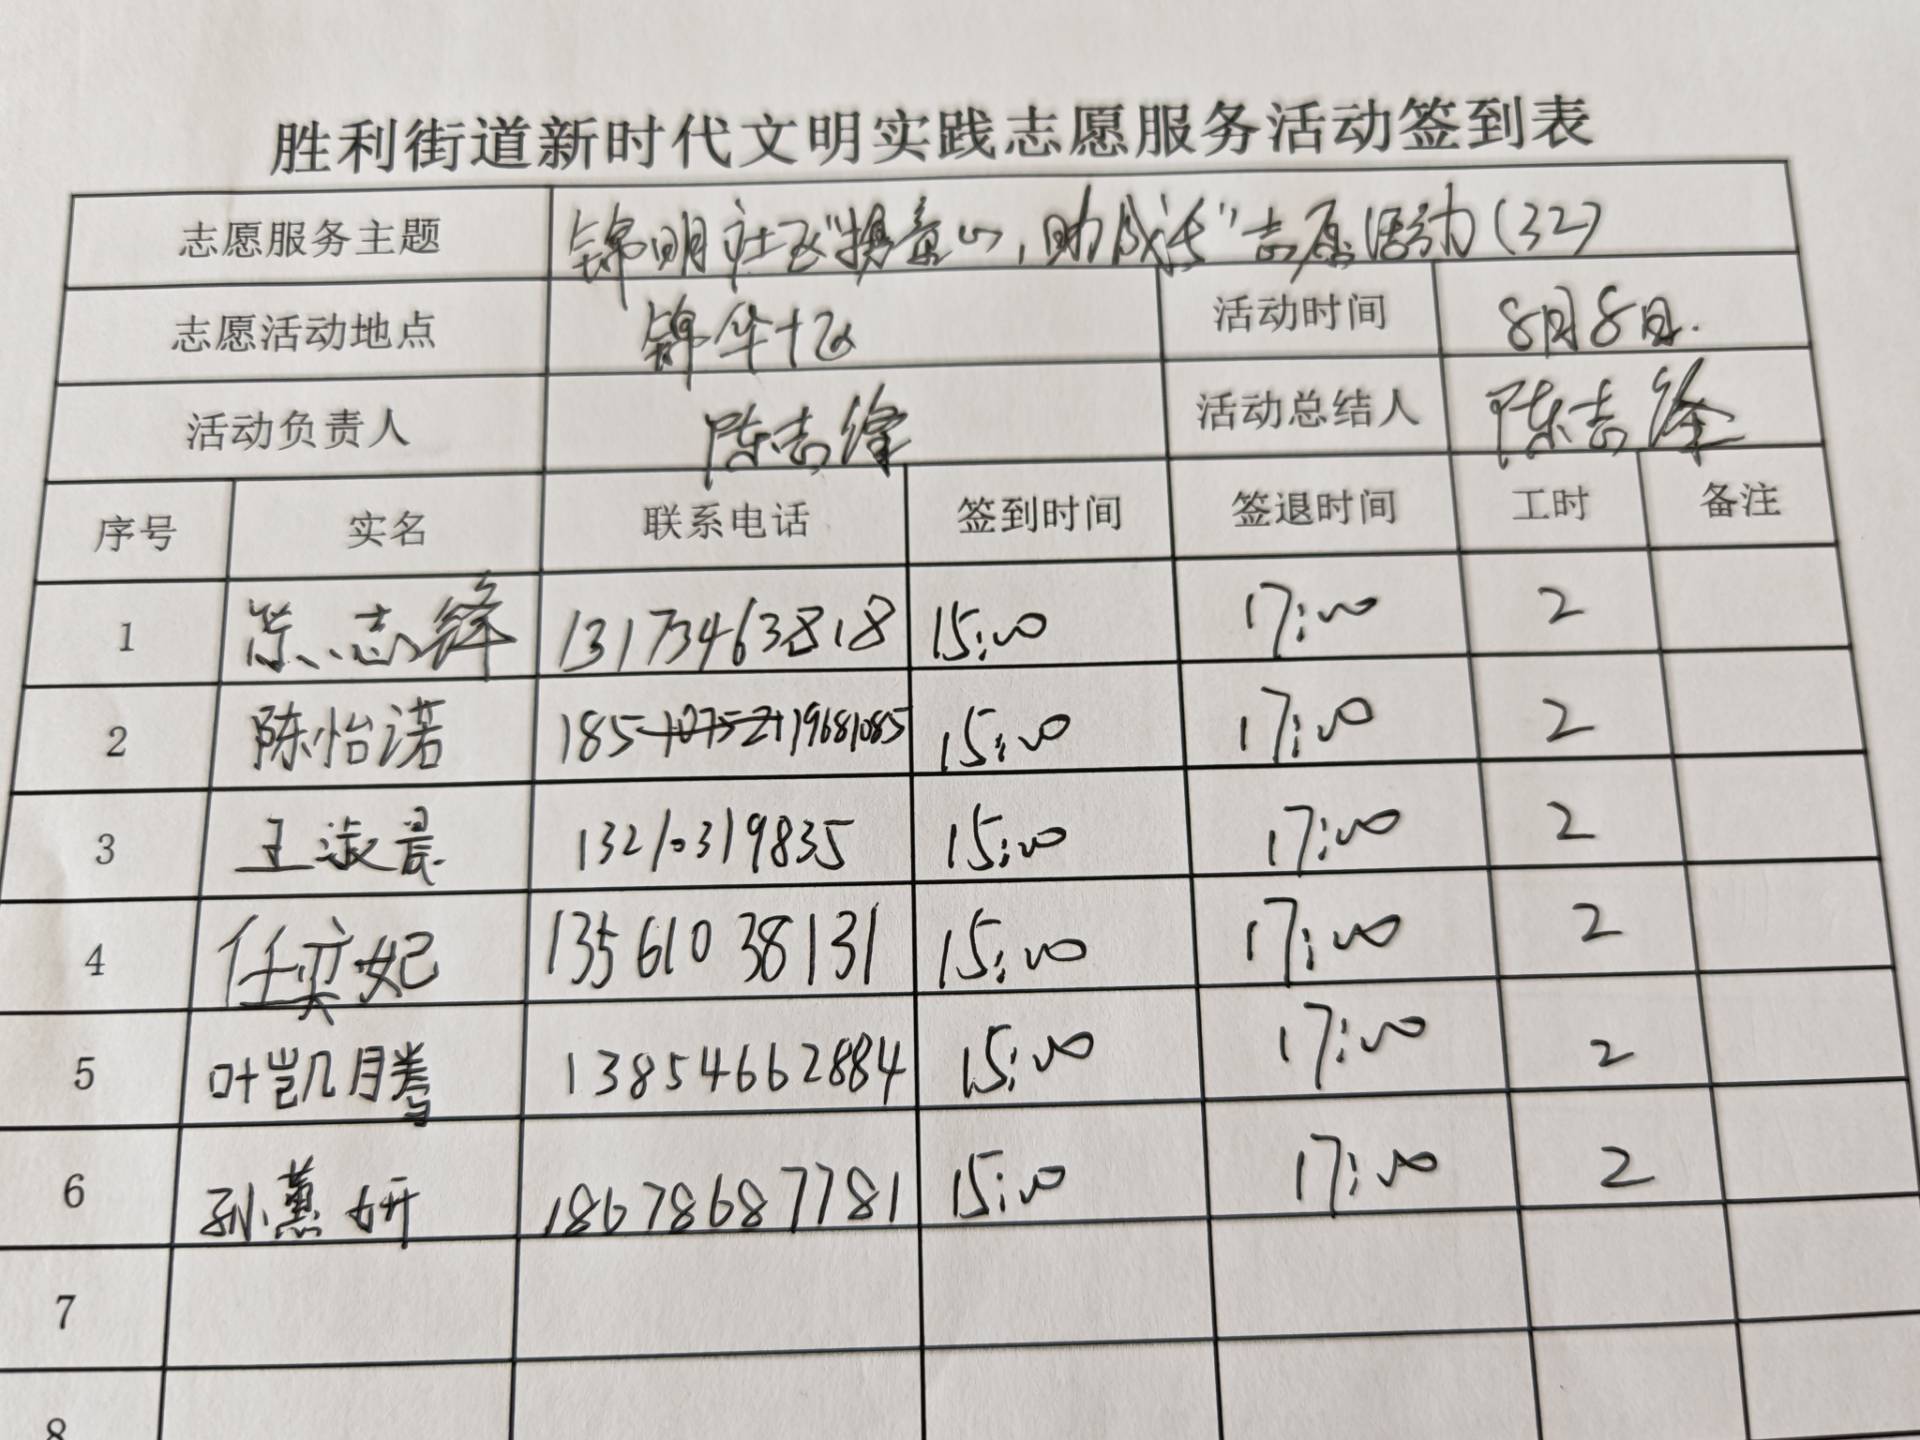 胜利街道新时代文明实践志愿服务活动签到表
志愿服务主题 锦明社区“携童心，助成长”志愿活动(32)
志愿活动地点 锦华十区 活动时间 8月8日.
活动负责人 陈志锋 活动总结人 陈志锋
序号 实名 联系电话 签到时间 签退时间 工时 备注
1 陈志锋 13173463818 15:00 17:00 2
2 陈怡诺 18519681085 15:00 17:00 2
3 王淑晨 13210319835 15:00 17:00 2
4 任奕妃 13561038131 15:00 17:00 2
5 叶凯腾 13854662884 15:00 17:00 2
6 孙蕙妍 18678687781 15:00 17:00 2
7
8